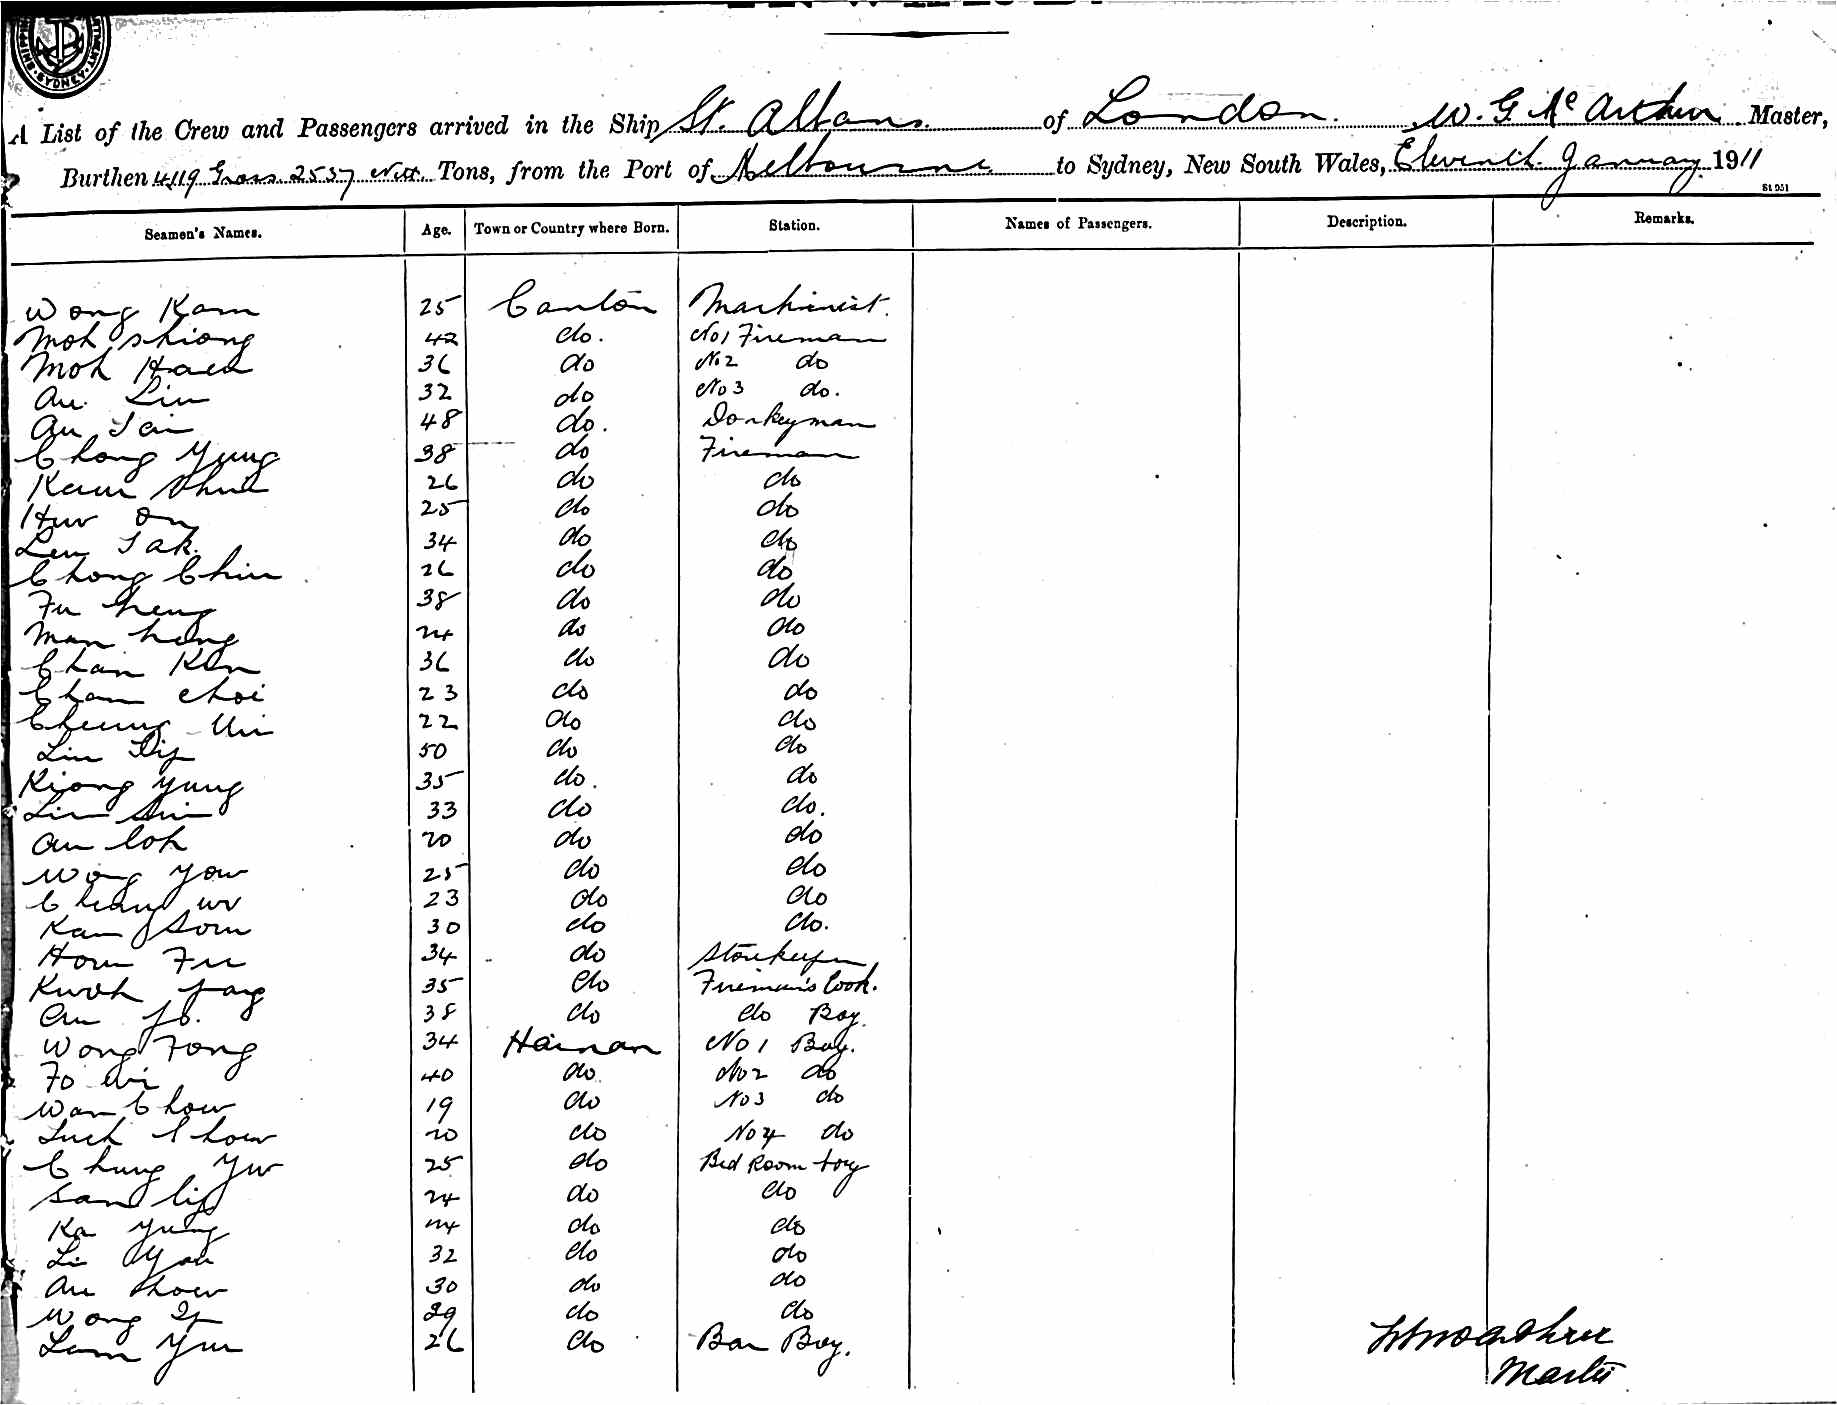 SYDNEY
A List of the Crew and Passengers arrived in the Ship St. Albans of London. W. G. McArthur Master,
Burthen 4119 Gross 2537 Nett Tons, from the Port of Melbourne to Sydney, New South Wales, Eleventh January 1911
St 951
Seamen's Names. Age. Town or Country where Born. Station. Names of Passengers. Description. Remarks.
Wong Kam 25 Canton Machinist.
Moh Shiong 42 do. No 1 Fireman
Moh 36 do No 2 do
Au Lin 32 do No 3 do.
Au 48 do. Donkeyman
Chong Yung 38 do Fireman
26 do do
On 25 do do
Tak. 34 do do
Chong Chin 26 do do
Fu heng 38 do do
Man hong 24 do do
Chan Ken 36 do do
Cham Choi 23 do do
Cheung 22 do do
Lin 50 do do
Kiong Yung 35 do. do
33 do do.
Au loh 20 do do
Wong Yow 25 do do
23 do do
Kam Som 30 do do.
Hom Fu 34 do Storekeeper
Kwok 35 do Fireman's Cook.
Au 38 do do Boy.
Wong Fong 34 Hainan No 1 Boy.
Fo 40 do No 2 do
Wan Chow 19 do No 3 do
20 do No 4 do
Chung Yw 25 do Bed Room boy
24 do do
Ka Yung 24 do do
Li 32 do do
Au 30 do do
Wong 29 do do
Lam 26 do Bar Boy.
Master